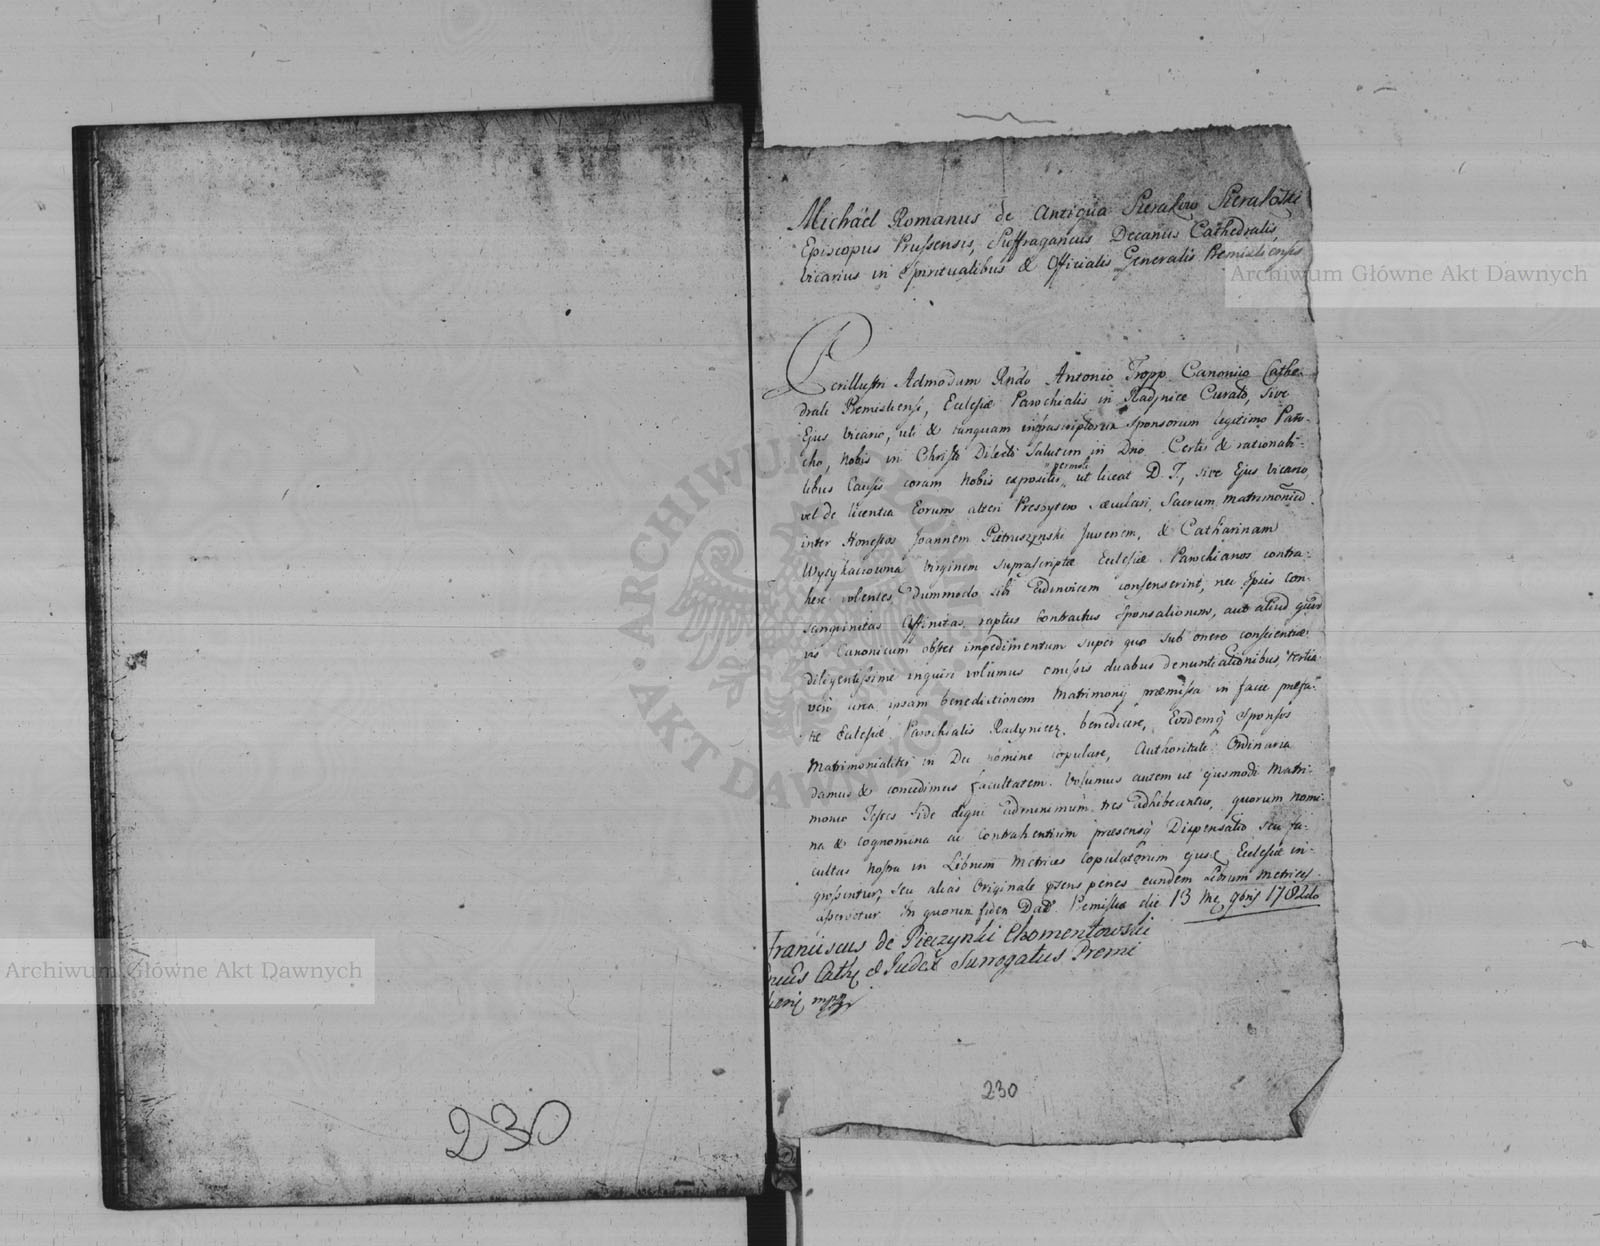 Michaël Romanus de Antiqua Sierakow Sierakowski
Episcopus Prussensis, Suffraganeus Decanus Cathedralis,
Vicarius in Spiritualibus & Officialis Generalis Premisliensis
Perillustri Admodum Rndo Antonio Tropp Canonico Cathe-
drali Premisliensi, Ecclesiæ Parochialis in Radynice Curato, sive
Ejus Vicario, uti & tanquam infrascriptorum Sponsorum legitimo Paro-
cho, Nobis in Christo Dilecti Salutem in Dno. Certis & rationabi-
libus Causis coram Nobis expositis, permoti ut liceat D. T., sive Ejus Vicario,
vel de licentia Eorum alteri Presbytero sæculari, Sacrum matrimonium
inter Honestos Joannem Pietruszynski Juvenem, & Catharinam
Wyczykacrowna Virginem suprascriptæ Ecclesiæ Parochianos contra-
here volentes, dummodo sibi Eidinvicem consenserint, nec Ipsis Con-
sanguinitas Affinitas, raptus Contractus Sponsalionum, aut aliud quid-
vis Canonicum obstet impedimentum super quo sub onere conscientiæ
diligentissime inquiri volumus omissis duabus denuntiationibus, tertia
vero circa ipsam benedictionem Matrimonij præmissa in facie præfa-
tæ Ecclesiæ Parochialis Radynicez, benedicere, Eosdemq Sponsos
Matrimonialiter in Dei nomine copulare, Authoritate Ordinaria
damus & concedimus facultatem. Volumus autem ut ejusmodi Matri-
monio Testes fide digni adminimum tres adhibeantur, quorum nomi-
na & cognomina ac Contrahentium præsensq Dispensatio seu fa-
cultas Nostra in Librum Metrices Copulatorum ejusd Ecclesiæ in-
grossentur, seu alias Originale præsens penes eundem Librum Metrices
asservetur. In quorum fidem Datt Premisliæ die 13 Me 9bris 1782do
Franciscus de Pieczynski Chomentowski
Cath & Judex Surrogatus Premi
mpp
230
230
ARCHIWUM GŁÓWNE AKT DAWNYCH
Archiwum Główne Akt Dawnych
Archiwum Główne Akt Dawnych